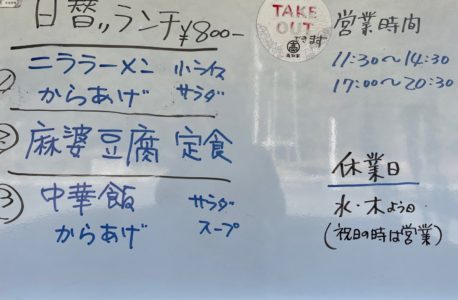 日替りランチ ¥800-
① ニララーメン 小ライス
からあげ サラダ
② 麻婆豆腐 定食
③ 中華飯 サラダ
からあげ スープ
TAKE
OUT
できます
営業時間
11:30〜14:30
17:00〜20:30
休業日
水・木よう日
(祝日の時は営業)